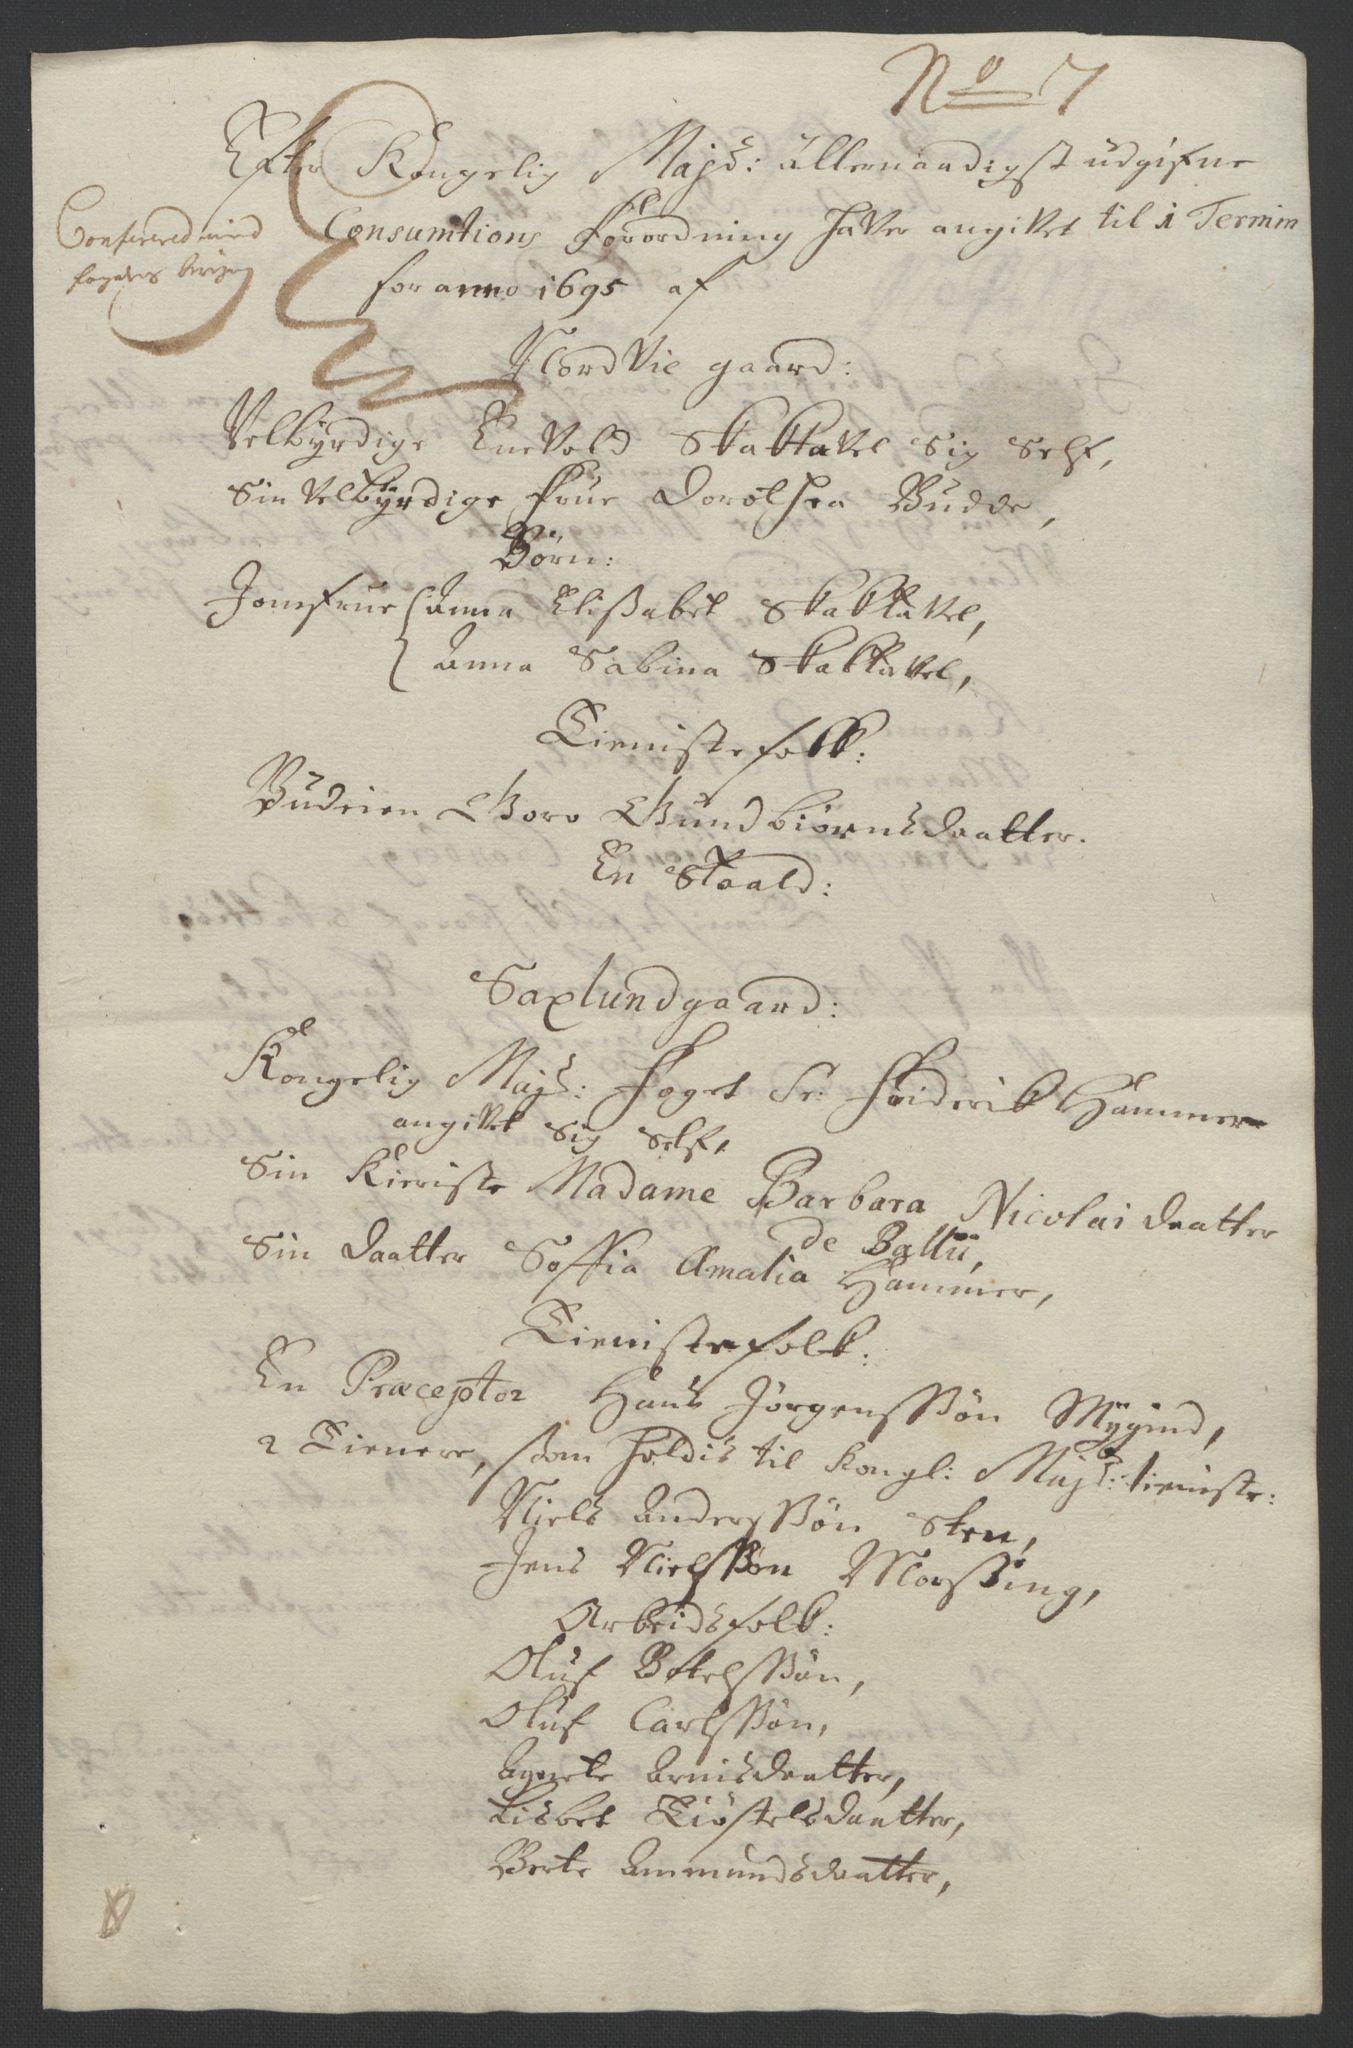 No 7
Efter Kongelig Mayts: allernaadigst udgifne
Consumtions Forordning haver angivet til 1 Termin
for anno 1695 af
Confereret med
fogdens
Nordvie gaard:
Velbyrdige Enevold Skaktavel sig self,
Sin velbyrdige Frue Dorothea Budde,
Børn:
Jomfrue { Anna Elissabet Skaktavel,
{ Anna Sabina Skaktavel,
Tienistefolk:
Budeien Goro Gundbiørnsdaatter.
En Skaald:
Saxlundgaard:
Kongelig Mayts: Foget Sr: Friderik Hammer
angivet sig self,
Sin Kieriste Madame Barbara Nicolai daatter
de Ballü,
Sin daatter Soffia Amalia Hammer,
Tienistefolk:
En Præceptor Hans Jørgenssøn Mÿgind,
2 Tienere, som holdis til Kongl: Mayts: tieniste:
Niels Anderssøn Sten,
Jens Nielssøn Morssing,
Arbeidsfolk:
Oluf Botelssøn,
Oluf Carlssøn,
Agnete Arnisdaatter,
Lisbet Tiøstelsdaatter,
Berte Ammundsdaatter,